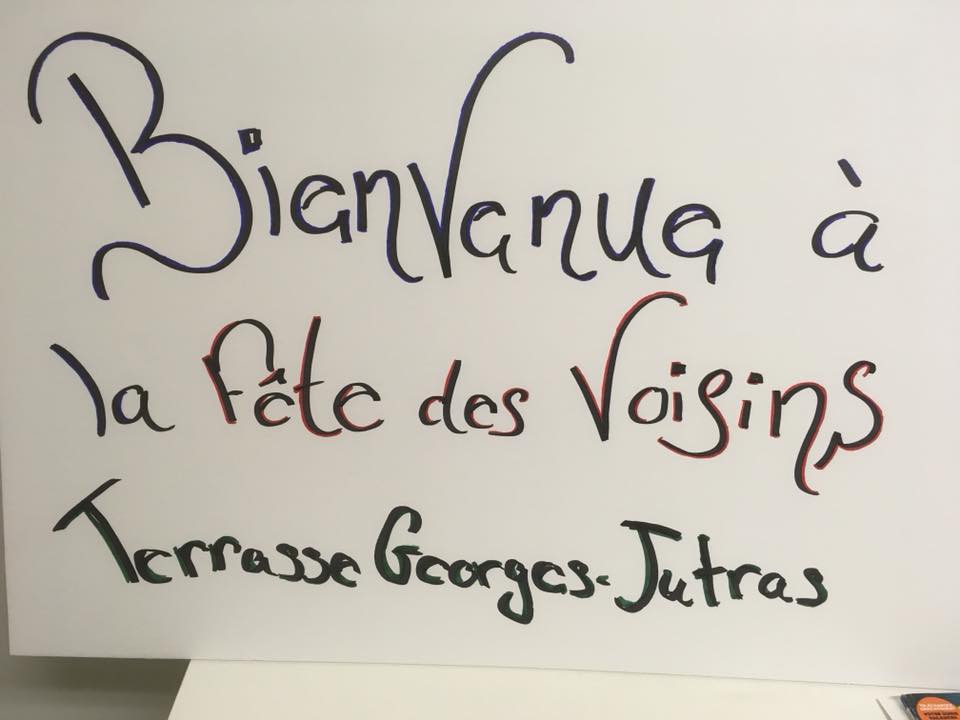 Bienvenue à
la fête des Voisins
Terrasse Georges-Jutras